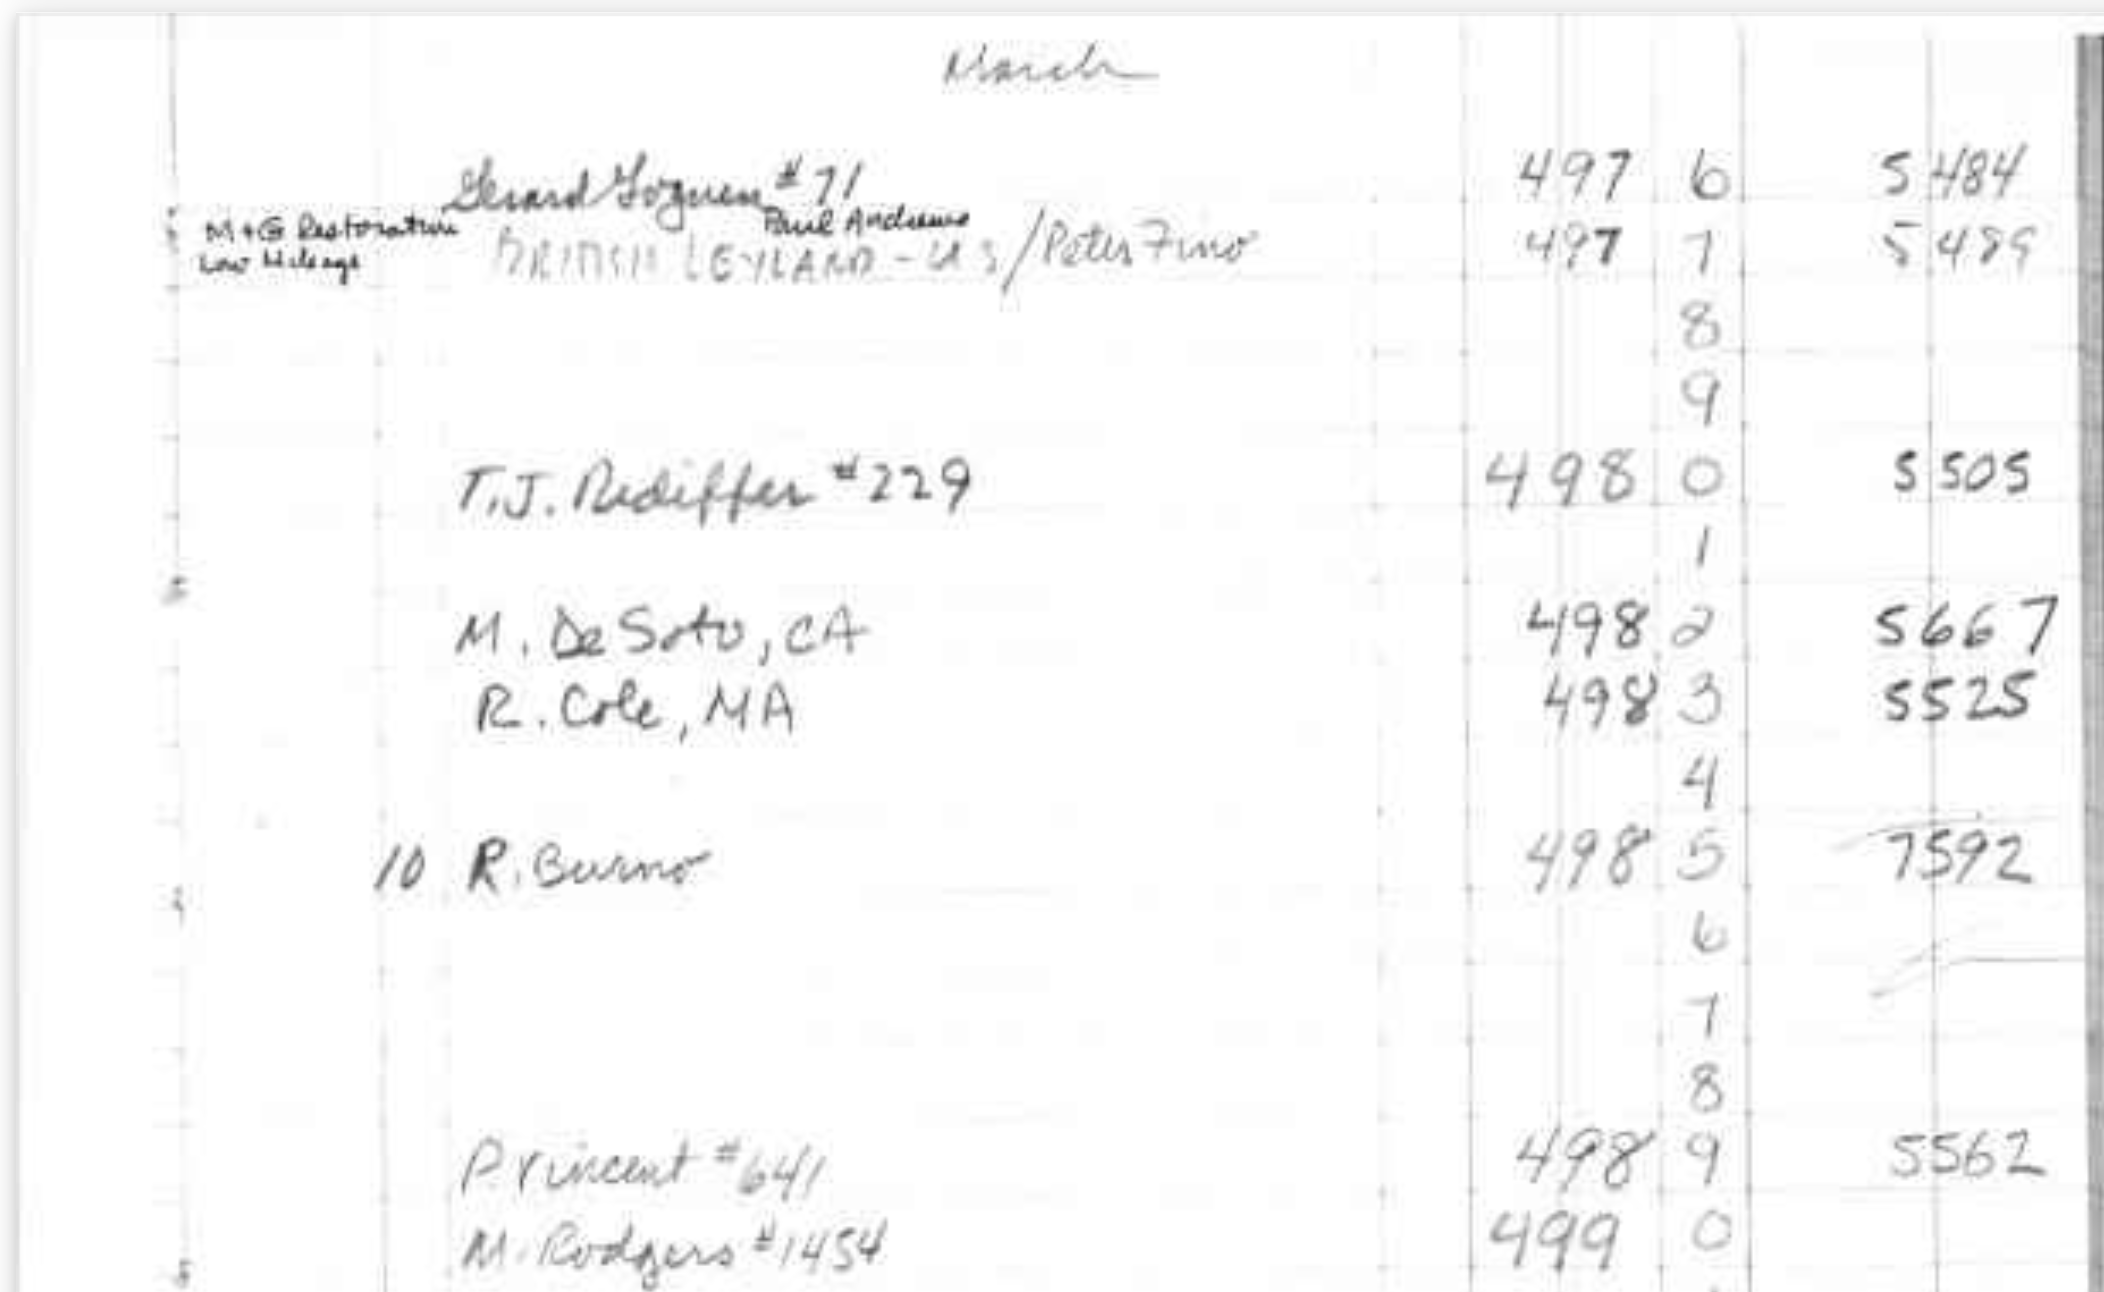 March
Gerard Goguen #71 497 6 5484
Paul Andrews
M+G Restoration
BRITISH LEYLAND-US/Peter Fino 497 7 5489
Low Mileage
8
9
T.J. Rediffer #229 498 0 5505
1
M. DeSoto, CA 498 2 5667
R. Cole, MA 498 3 5525
4
10 R. Burno 498 5 7592
6
7
8
P. Vincent #641 498 9 5562
M. Rodgers #1454 499 0